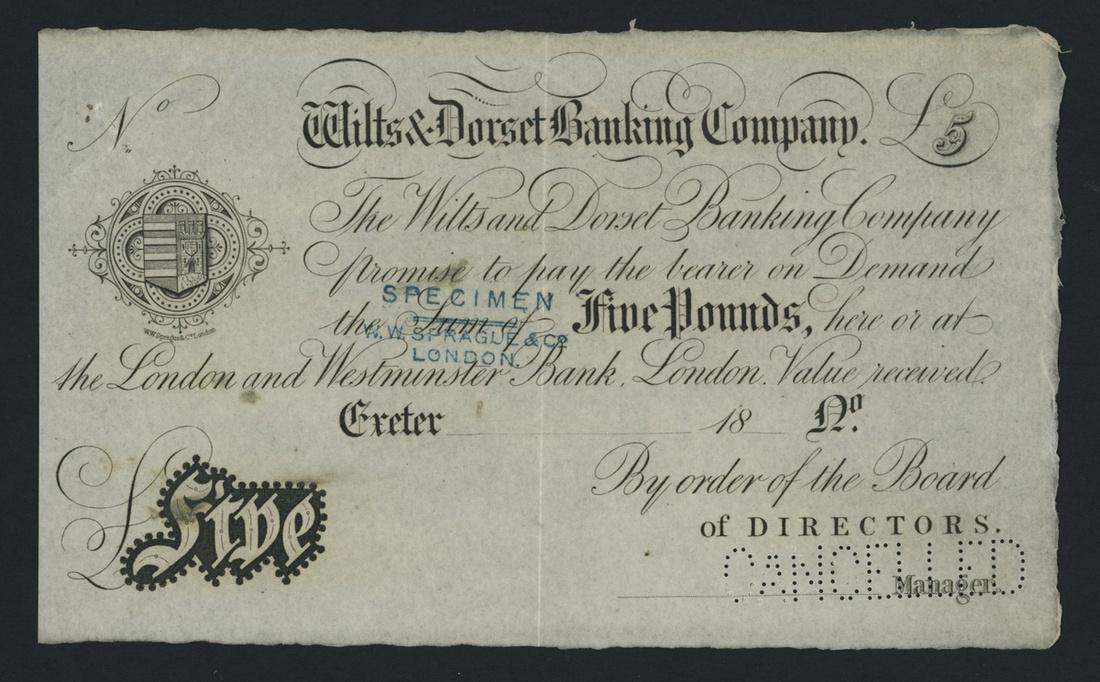 No
Wilts & Dorset Banking Company. £5
The Wilts and Dorset Banking Company
promise to pay the bearer on Demand
the Sum of Five Pounds, here or at
the London and Westminster Bank, London. Value received.
SPECIMEN
W.W. SPRAGUE & Co
LONDON.
W.W. Sprague & Co. London
Exeter 18 No.
£Five
By order of the Board
of DIRECTORS.
CANCELLED
Manager.